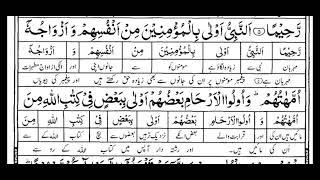 رَّحِيْمًا ۝ اَلنَّبِيُّ اَوْلٰى بِالْمُؤْمِنِيْنَ مِنْ اَنْفُسِهِمْ وَ اَزْوَاجُهٗۤ
رَّحِيْمًا اَلنَّبِيُّ اَوْلٰى بِالْمُؤْمِنِيْنَ مِنْ اَنْفُسِهِمْ وَ اَزْوَاجُهٗۤ
مہربان نبی زیادہ لگاؤ ہے مومنوں کو سے جانوں اپنی اور
مہربان ہے پیغمبر مومنوں پر ان کی جانوں سے بھی زیادہ حق رکھتے ہیں اور پیغمبر کی بیویاں
اُمَّهٰتُهُمْ ؕ وَ اُولُوا الْاَرْحَامِ بَعْضُهُمْ اَوْلٰى بِبَعْضٍ فِيْ كِتٰبِ اللّٰهِ مِنَ
اُمَّهٰتُهُمْ وَ اُولُوا الْاَرْحَامِ بَعْضُهُمْ اَوْلٰى بِبَعْضٍ فِيْ كِتٰبِ اللّٰهِ مِنَ
مائیں ہیں ان کی اور قرابت والے بعض انکے نزدیک تر ہیں بعضوں سے بیچ کتاب اللہ کے سے
ان کی مائیں ہیں اور رشتہ دار آپس میں کتاب اللہ کے رو سے